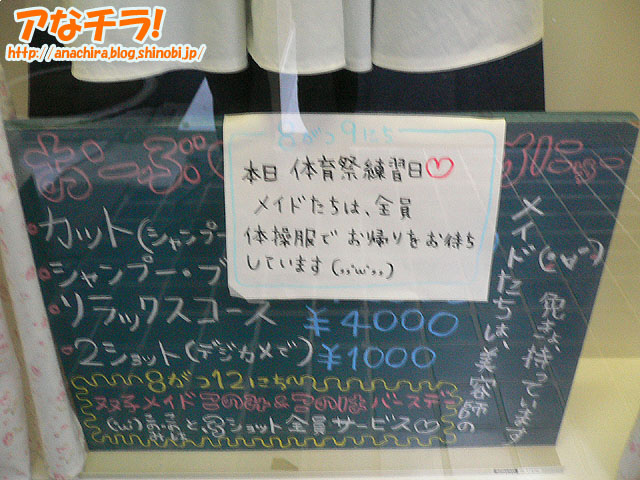 アなチラ!
http://anachira.blog.shinobi.jp/
8がつ9にち
本日 体育祭練習日♡
メイドたちは、全員
体操服で お帰りをお待ち
しています(,,'w',,)
おーぷ
・カット(シャンプー
・シャンプー・ブ
・リラックスコース ¥4000
・2ショット(デジカメで) ¥1000
メイドたちは、美容師の
免許、持っています
8がつ12にち
双子メイド
バースデー
と3ショット全員サービス♡